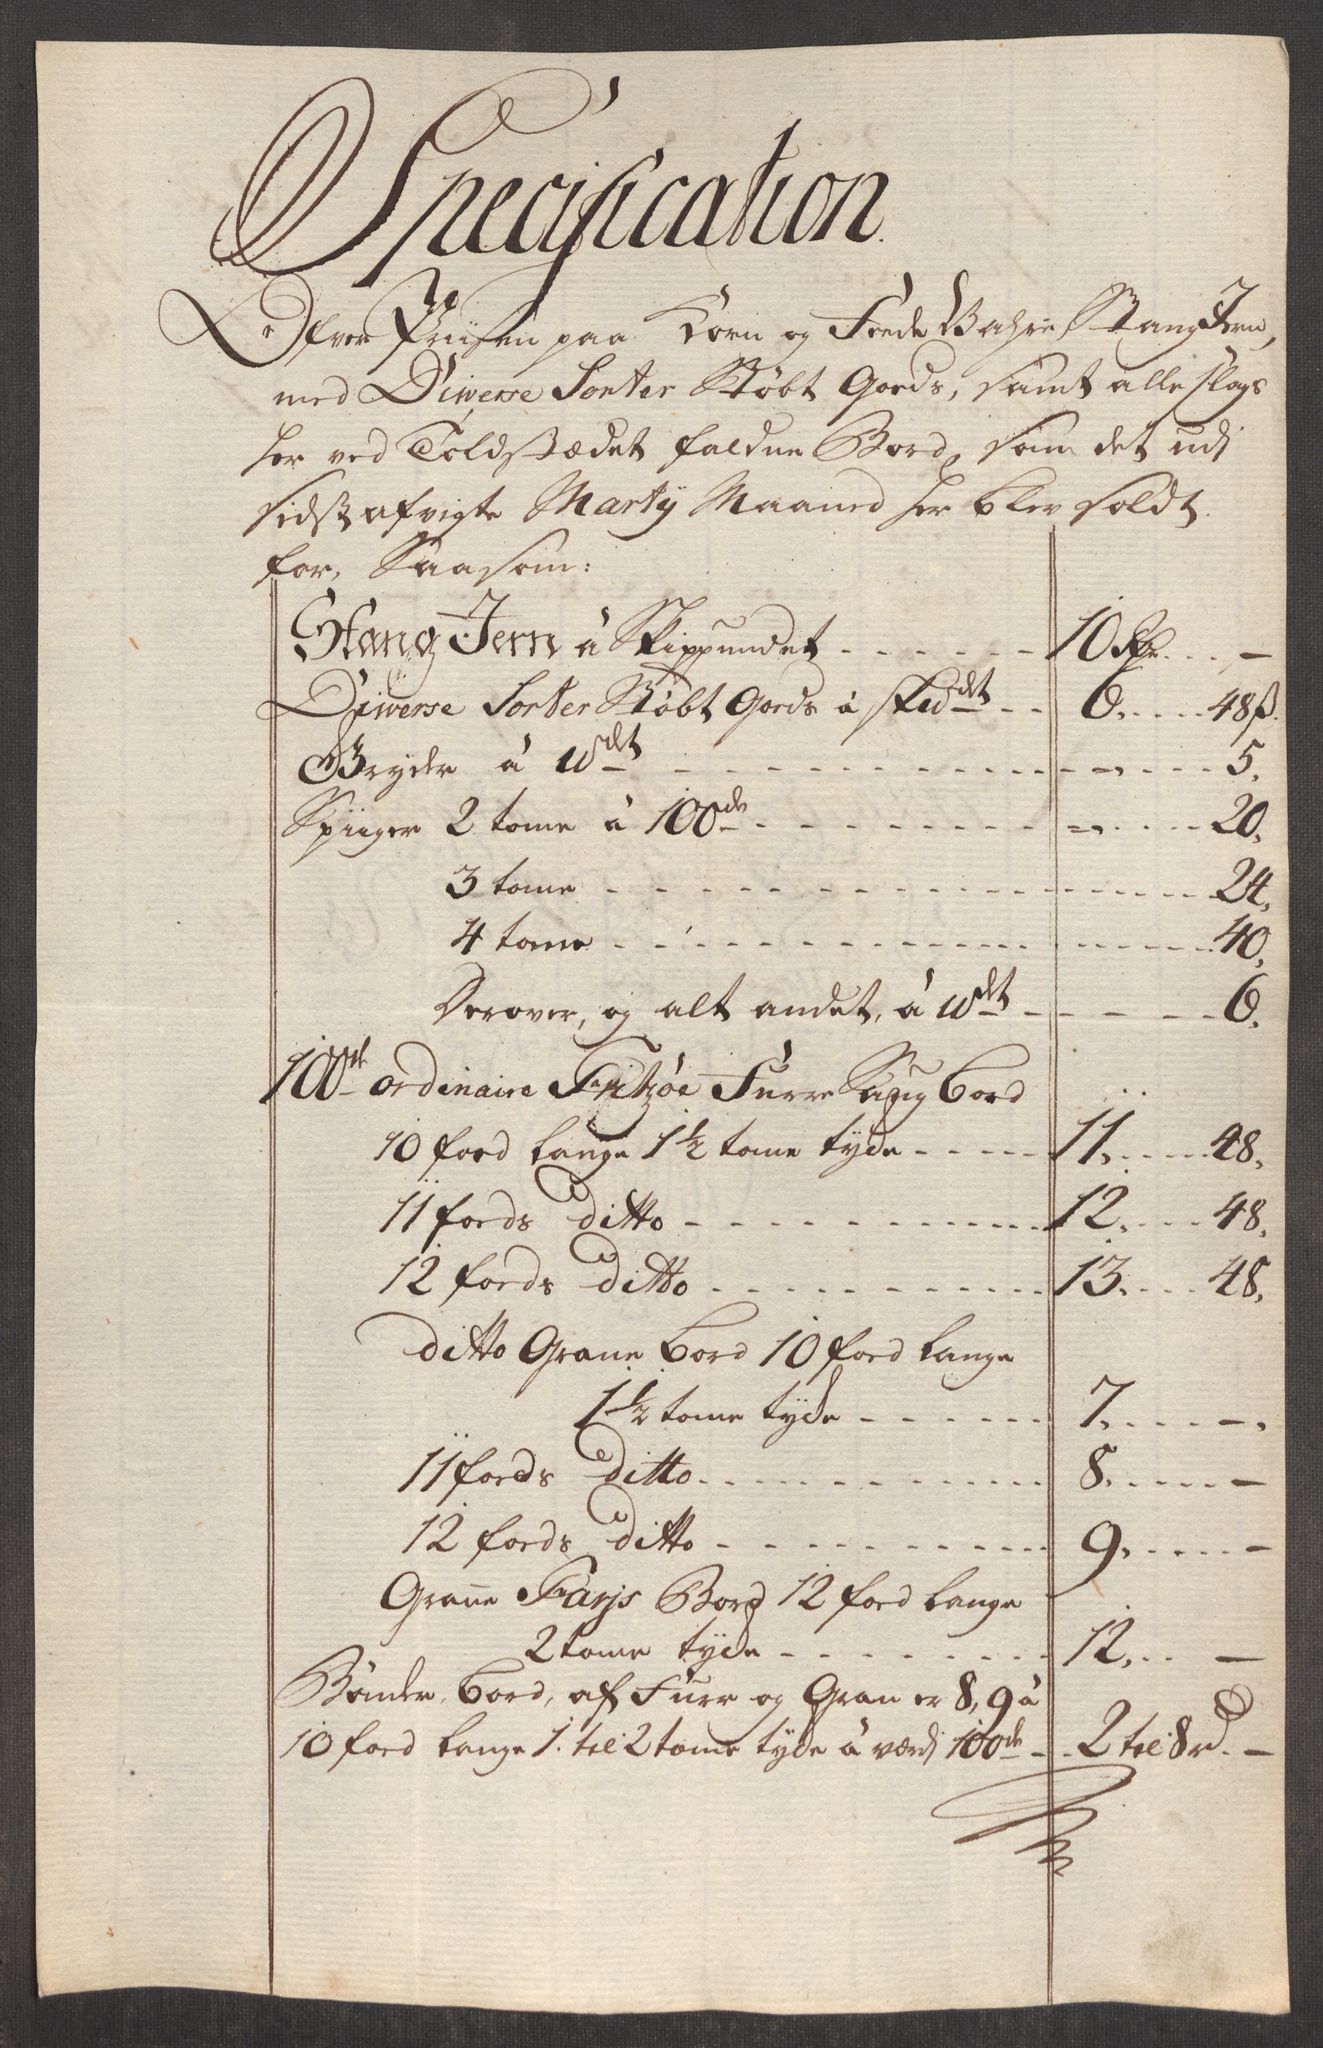 Specification
Ofver Priisen paa Korn og Foede Vahre, Stang Jern,
med Diwerse Sorter Støbt Goeds, samt alle slags
her ved Toldstædet faldne Bord, som det udj
sidst afvigte Martij Maaned her blev soldt
for, Saasom:
Stang Jern à Skippundet - - - - - - 10 Rdr. - - -
Diwerse Sorter Støbt Goeds à sk℔det - - 6. - - - - 48 ß.
Gryder à ℔det - - - - - - - - - - - - 5.
Spiiger 2 tome à 100de - - - - - - - - - - 20.
3 tome - - - - - - - - - - - - - 24.
4 tome - - - - - - - - - - - - - 40.
Derover, og alt andet, à ℔det - - - - - 6.
100de ordinaire Fritzøe Furre Saug bord
10 foed lange 1½ tome tyde - - - - - 11. - - - - 48.
11 foeds ditto - - - - - - - - - - - 12. - - - - 48.
12 foeds ditto - - - - - - - - - - - 13. - - - - 48.
ditto Grane bord 10 foed lange
1½ tome tyde - - - - - - 7. - - - - -.
11 foeds ditto - - - - - - - - - - - 8. - - - - -
12 foeds ditto - - - - - - - - - - - 9. - - - - -
Grane Farjs Bord 12 foed lange
2 tome tyde - - - - - - - - - 12. - - -
Bønder bord, af Furr og Gran er 8, 9 à
10 foed lange 1. til 2 tome tyde à værdj 100de - - 2 til 8 rd. -